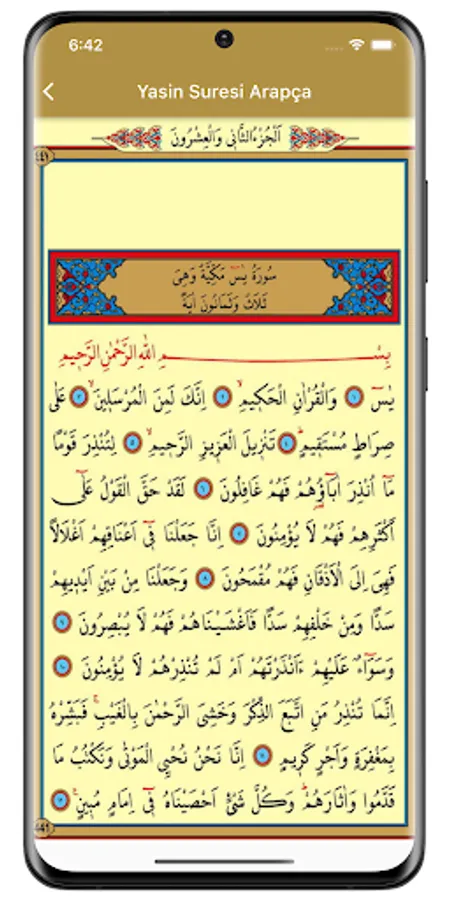 6:42
Yasin Suresi Arapça
اَلْجُزْءُ الثَّانِي وَالْعِشْرُونَ
٤٤١
سُورَةُ يٰسٓ مَكِّيَّةٌ وَهِىَ
ثَلَاثٌ وَثَمَانُونَ اٰيَةً
بِسْــــمِ اللّٰهِ الرَّحْمٰنِ الرَّحٖيمِ
يٰسٓ ﴿١﴾ وَالْقُرْاٰنِ الْحَكٖيمِۙ ﴿٢﴾ اِنَّكَ لَمِنَ الْمُرْسَلٖينَۙ ﴿٣﴾ عَلٰى
صِرَاطٍ مُسْتَقٖيمٍؕ ﴿٤﴾ تَنْزٖيلَ الْعَزٖيزِ الرَّحٖيمِۙ ﴿٥﴾ لِتُنْذِرَ قَوْمًا
مَٓا اُنْذِرَ اٰبَٓاؤُ۬هُمْ فَهُمْ غَافِلُونَ ﴿٦﴾ لَقَدْ حَقَّ الْقَوْلُ عَلٰٓى
اَكْثَرِهِمْ فَهُمْ لَا يُؤْمِنُونَ ﴿٧﴾ اِنَّا جَعَلْنَا فٖٓى اَعْنَاقِهِمْ اَغْلَالًا
فَهِىَ اِلَى الْاَذْقَانِ فَهُمْ مُقْمَحُونَ ﴿٨﴾ وَجَعَلْنَا مِنْ بَيْنِ اَيْدٖيهِمْ
سَدًّا وَمِنْ خَلْفِهِمْ سَدًّا فَاَغْشَيْنَاهُمْ فَهُمْ لَا يُبْصِرُونَ ﴿٩﴾
وَسَوَٓاءٌ عَلَيْهِمْ ءَاَنْذَرْتَهُمْ اَمْ لَمْ تُنْذِرْهُمْ لَا يُؤْمِنُونَ ﴿١٠﴾
اِنَّمَا تُنْذِرُ مَنِ اتَّبَعَ الذِّكْرَ وَخَشِىَ الرَّحْمٰنَ بِالْغَيْبِۚ فَبَشِّرْهُ
بِمَغْفِرَةٍ وَاَجْرٍ كَرٖيمٍ ﴿١١﴾ اِنَّا نَحْنُ نُحْيِ الْمَوْتٰى وَنَكْتُبُ مَا
قَدَّمُوا وَاٰثَارَهُمْؕ وَكُلَّ شَىْءٍ اَحْصَيْنَاهُ فٖٓى اِمَامٍ مُبٖينٍ۟ ﴿١٢﴾
٤٤١